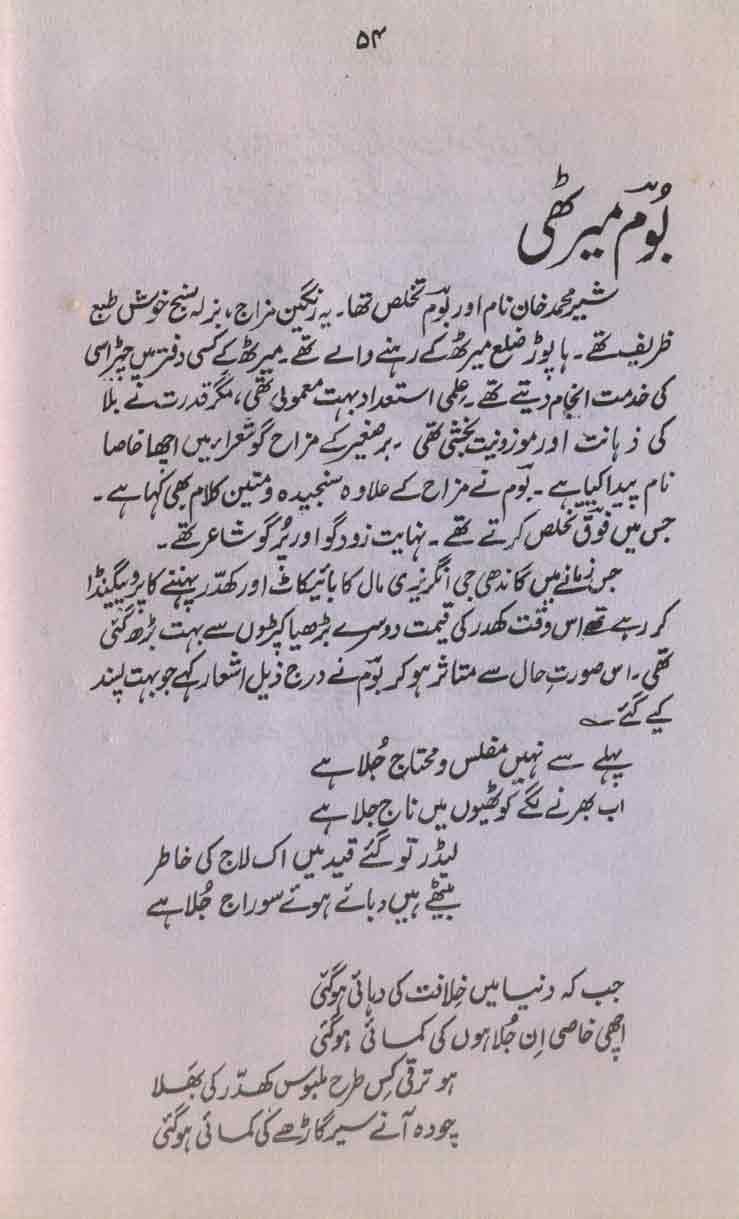 ۵۴
بُومؔ میرٹھی
شیر محمد خان نام اور بومؔ تخلص تھا۔ یہ رنگین مزاج، بزلہ سنج خوش طبع
ظریف تھے۔ ہاپوڑ ضلع میرٹھ کے رہنے والے تھے۔ میرٹھ کے کسی دفتر میں چپڑاسی
کی خدمت انجام دیتے تھے۔ علمی استعداد بہت معمولی تھی، مگر قدرت نے بلا
کی ذہانت اور موزونیت بخشی تھی۔ برصغیر کے مزاح گو شعراء میں اچھا خاصا
نام پیدا کیا ہے۔ بومؔ نے مزاح کے علاوہ سنجیدہ و متین کلام بھی کہا ہے۔
جس میں فوقؔ تخلص کرتے تھے۔ نہایت زود گو اور پُر گو شاعر تھے۔
جس زمانے میں گاندھی جی انگریزی مال کا بائیکاٹ اور کھدّر پہننے کا پروپیگنڈا
کر رہے تھے اس وقت کھدر کی قیمت دوسرے بڑھیا کپڑوں سے بہت بڑھ گئی
تھی۔ اس صورتِ حال سے متاثر ہو کر بومؔ نے درج ذیل اشعار کہے جو بہت پسند
کیے گئے۔
پہلے سے نہیں مفلس و محتاج جُلاہے
اب بھرنے لگے کوٹھیوں میں ناج جلاہے
لیڈر تو گئے قید میں اک لاج کی خاطر
بیٹھے ہیں دبائے ہوئے سوراج جُلاہے
جب کہ دنیا میں خِلافت کی دہائی ہوگئی
اچھی خاصی اِن جُلاہوں کی کمائی ہوگئی
ہو ترقی کِس طرح ملبوس کھدّر کی بَھلا
چودہ آنے سیر گاڑھے کی کمائی ہوگئی